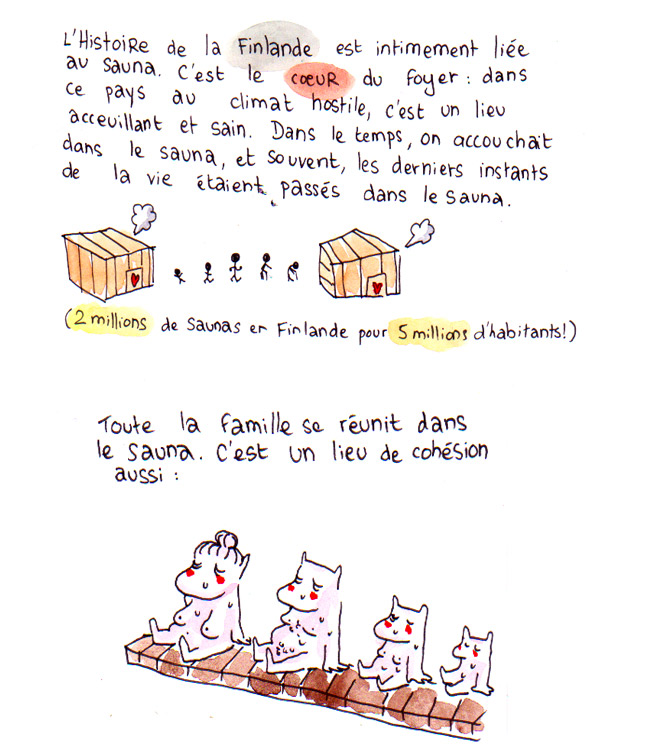 L'Histoire de la Finlande est intimement liée
au Sauna. C'est le coeur du foyer : dans
ce pays au climat hostile, c'est un lieu
acceuillant et sain. Dans le temps, on accouchait
dans le sauna, et souvent, les derniers instants
de la vie étaient passés dans le sauna.
(2 millions de saunas en Finlande pour 5 millions d'habitants!)
Toute la famille se réunit dans
le sauna. C'est un lieu de cohésion
aussi :